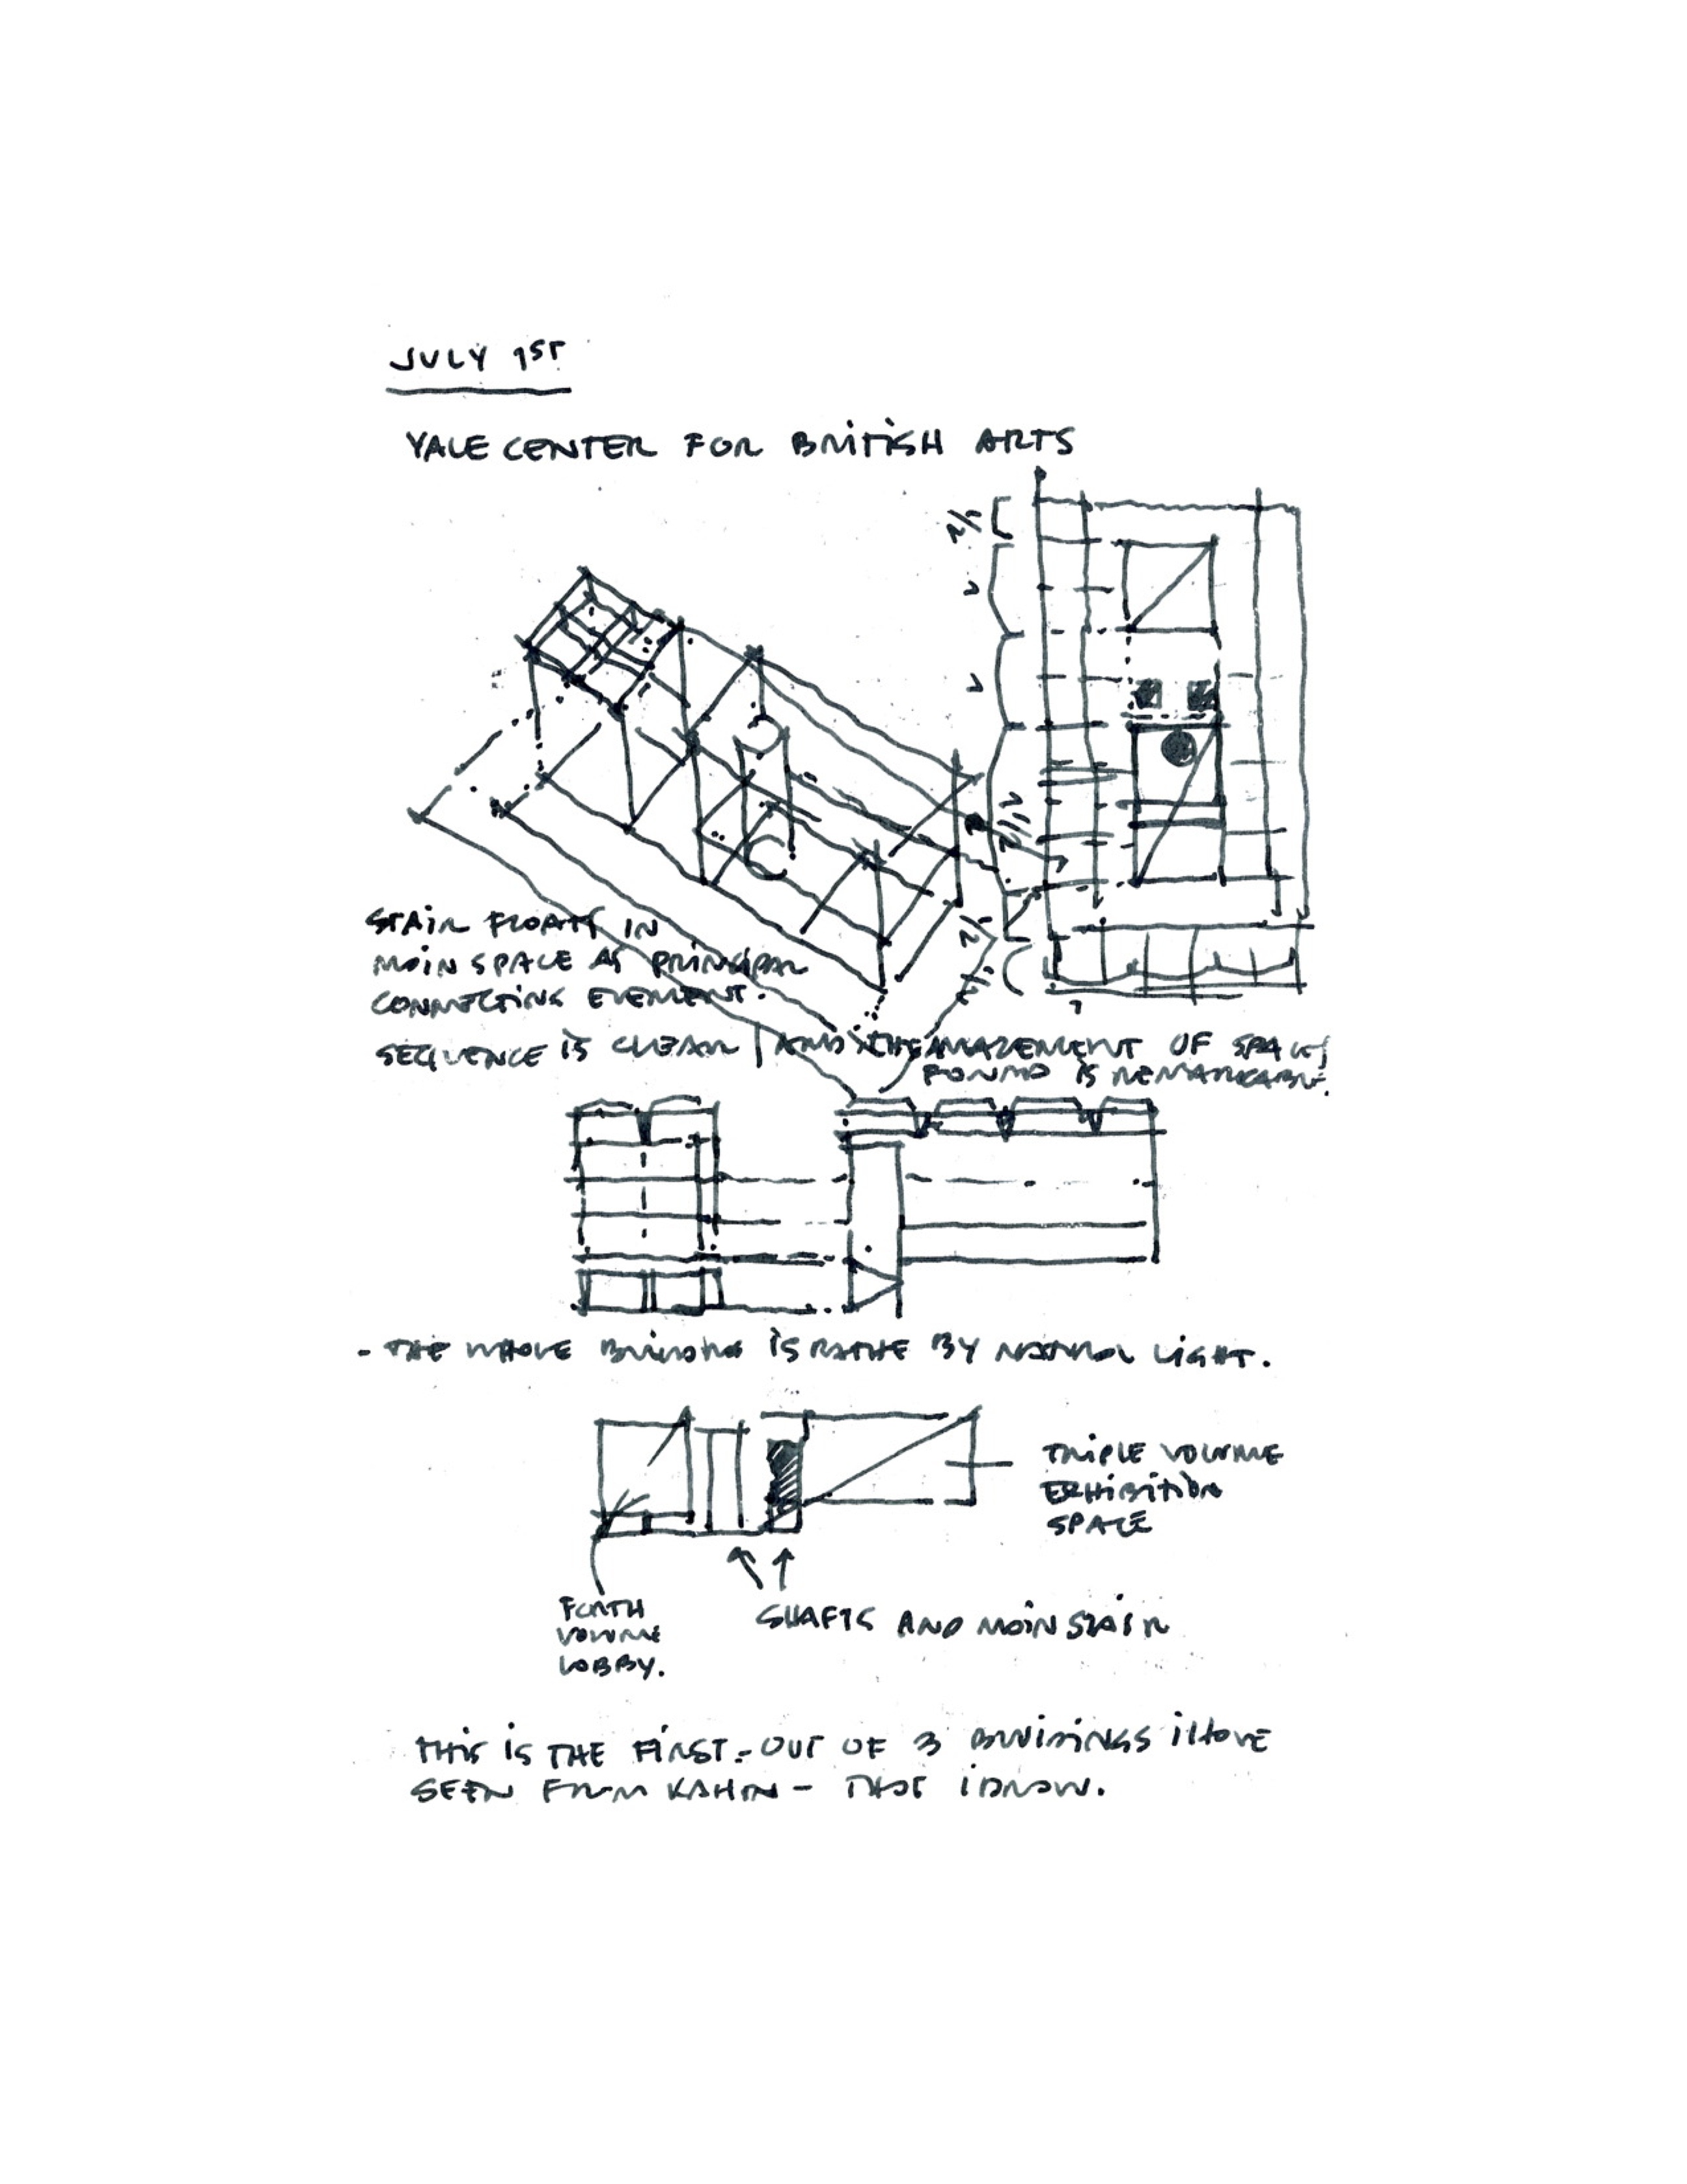 JULY 1ST
YALE CENTER FOR BRITISH ARTS
STAIR FLOATS IN
MAIN SPACE AS PRINCIPAL
CONNECTING ELEMENT.
SEQUENCE IS CLEAR AND THE AMAZEMENT OF SPACE
FOUND IS REMARKABLE.
- THE WHOLE BUILDING IS BATHE BY NATURAL LIGHT.
TRIPLE VOLUME
EXHIBITION
SPACE
FORTH
VOLUME
LOBBY.
SHAFTS AND MAIN STAIR
THIS IS THE FIRST - OUT OF 3 BUILDINGS I HAVE
SEEN FROM KAHN - THAT I KNOW.